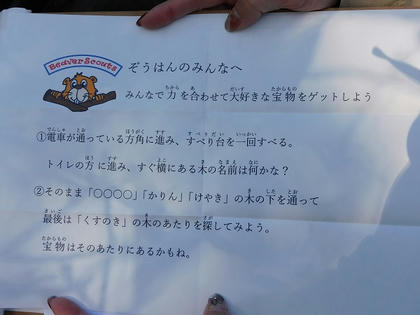 BeaverScouts
ぞうはんのみんなへ
みんなで力を合わせて大好きな宝物をゲットしよう
①電車が通っている方角に進み、すべり台を一回すべる。
トイレの方に進み、すぐ横にある木の名前は何かな？
②そのまま「○○○○」「かりん」「けやき」の木の下を通って
最後は「くすのき」の木のあたりを探してみよう。
宝物はそのあたりにあるかもね。